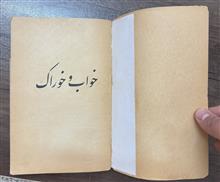 خواب و خوراک